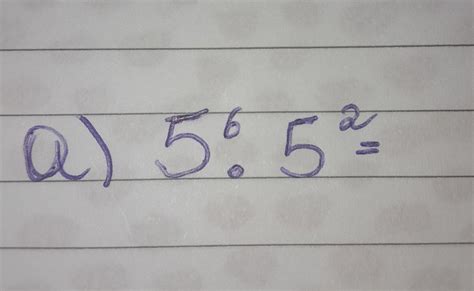 a) 5⁶ . 5² =